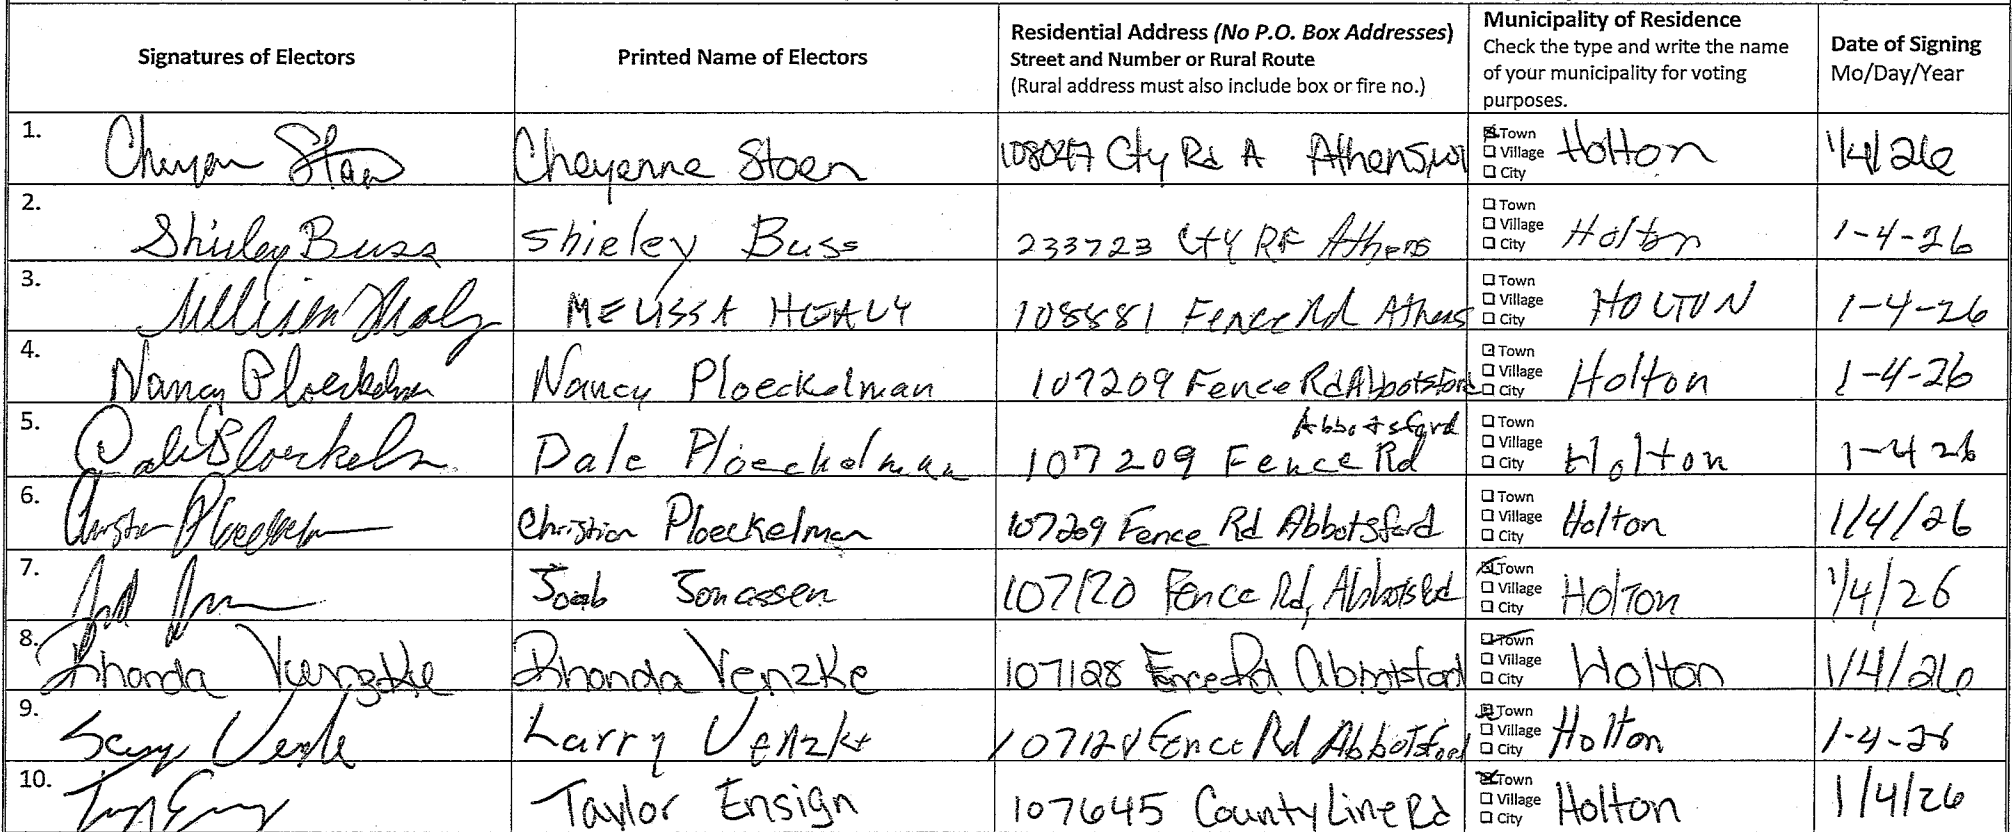 Signatures of Electors
Printed Name of Electors
Residential Address (No P.O. Box Addresses)
Street and Number or Rural Route
(Rural address must also include box or fire no.)
Municipality of Residence
Check the type and write the name
of your municipality for voting
purposes.
Date of Signing
Mo/Day/Year
1. Cheyenne Stoen 108047 Cty Rd A Athens, WI Town Village City Holton 1/4/26
2. Shirley Buss Shieley Buss 233723 Cty Rd F Athens Town Village City Holton 1-4-26
3. MELISSA HEALY 108881 Fence Rd Athens Town Village City HOLTON 1-4-26
4. Nancy Ploeckelman Nancy Ploeckelman 107209 Fence Rd Abbotsford Town Village City Holton 1-4-26
5. Dale Ploeckelman Dale Ploeckelman 107209 Fence Rd Abbotsford Town Village City Holton 1-4 26
6. Christian Ploeckelman Christian Ploeckelman 107209 Fence Rd Abbotsford Town Village City Holton 1/4/26
7. Jonassen 107120 Fence Rd, Abbotsford Town Village City Holton 1/4/26
8. Rhonda Venzke Rhonda Venzke 107128 Fence Rd Abbotsford Town Village City Holton 1/4/26
9. Larry Venzke Larry Venzke Fence Rd Abbotsford Town Village City Holton 1-4-26
10. Taylor Ensign 107645 County Line Rd Town Village City Holton 1/4/26